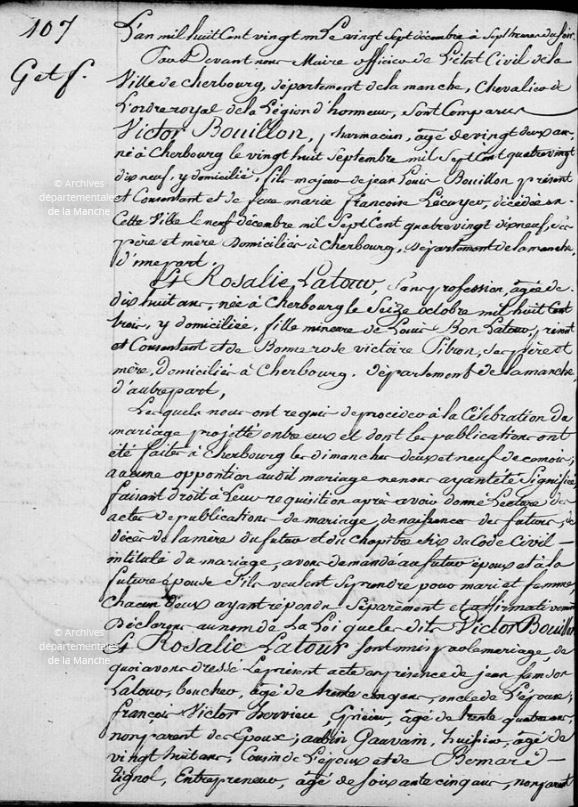 107
G et f.
L'an mil huit Cent vingt un Le vingt Sept décembre à Sept heures du soir
Par Devant nous Maire officier de L'état Civil de la
Ville de cherbourg, département de la manche, Chevalier de
L'ordre royal de la Légion d'honneur, Sont Comparus
Victor Bouillon, pharmacien, âgé de vingt deux ans
né à Cherbourg le vingt huit Septembre mil Sept Cent quatre vingt
dix neuf, y domicilié, fils majeur de jean Louis Bouillon présent
et Consentant et de feue marie françoise Lecoyer, décédée en
Cette Ville le neuf décembre mil Sept Cent quatre vingt dix neuf, ses
père et mère Domiciliés à Cherbourg, Département de la manche,
d'une part,
Et Rosalie Latour, Sans profession, âgée de
dix huit ans, née à Cherbourg le Seize octobre mil huit Cent
trois, y domiciliée, fille mineure de Louis Bon Latour, présent
et Consentant et de Bonne rose victoire ses père et
mère, Domiciliés à Cherbourg, Département de la manche,
d'autre part,
Lesquels nous ont requis de procéder à la Célébration du
mariage projetté entre eux et dont les publications ont
été faites à Cherbourg les dimanches deux et neuf de ce mois;
aucune opposition audit mariage ne nous ayant été Signifiée
faisant droit à Leur requisition après avoir donné Lecture des
actes de publications de mariage, de naissances des futurs, de
décès de la mère du futur et du chapitre Six du Code Civil
intitulé du mariage, avons demandé au futur époux et à la
future épouse S'ils veulent Se prendre pour mari et femme,
chacun deux ayant répondu Séparément et affirmativement
Déclarons au nom de La Loi que les dits Victor Bouillon
Et Rosalie Latour sont unis par le mariage, de
quoi avons dressé Le présent acte en présence de jean
Latour, boucher, âgé de trente cinq ans, oncle de L'épouse;
françois Victor hervieu, Epicier, âgé de trente quatre ans,
non parent des Epoux; aubin Gauvain, huissier, âgé de
vingt huit ans, Cousin de L'époux et de Bernard
Tignol, Entrepreneur, âgé de soixante cinq ans, non parent
© Archives
départementales
de la Manche
© Archives
départementales
de la Manche